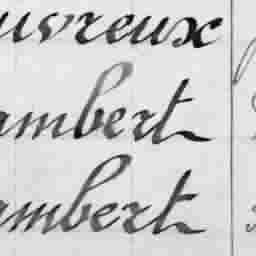 uvreux
ambert
ambert